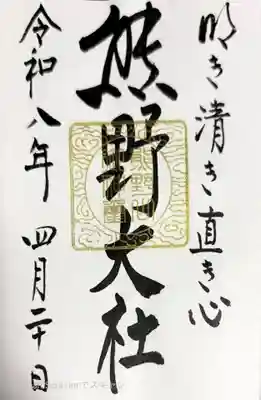 明き清き直き心
熊野大社
令和八年 四月二十日